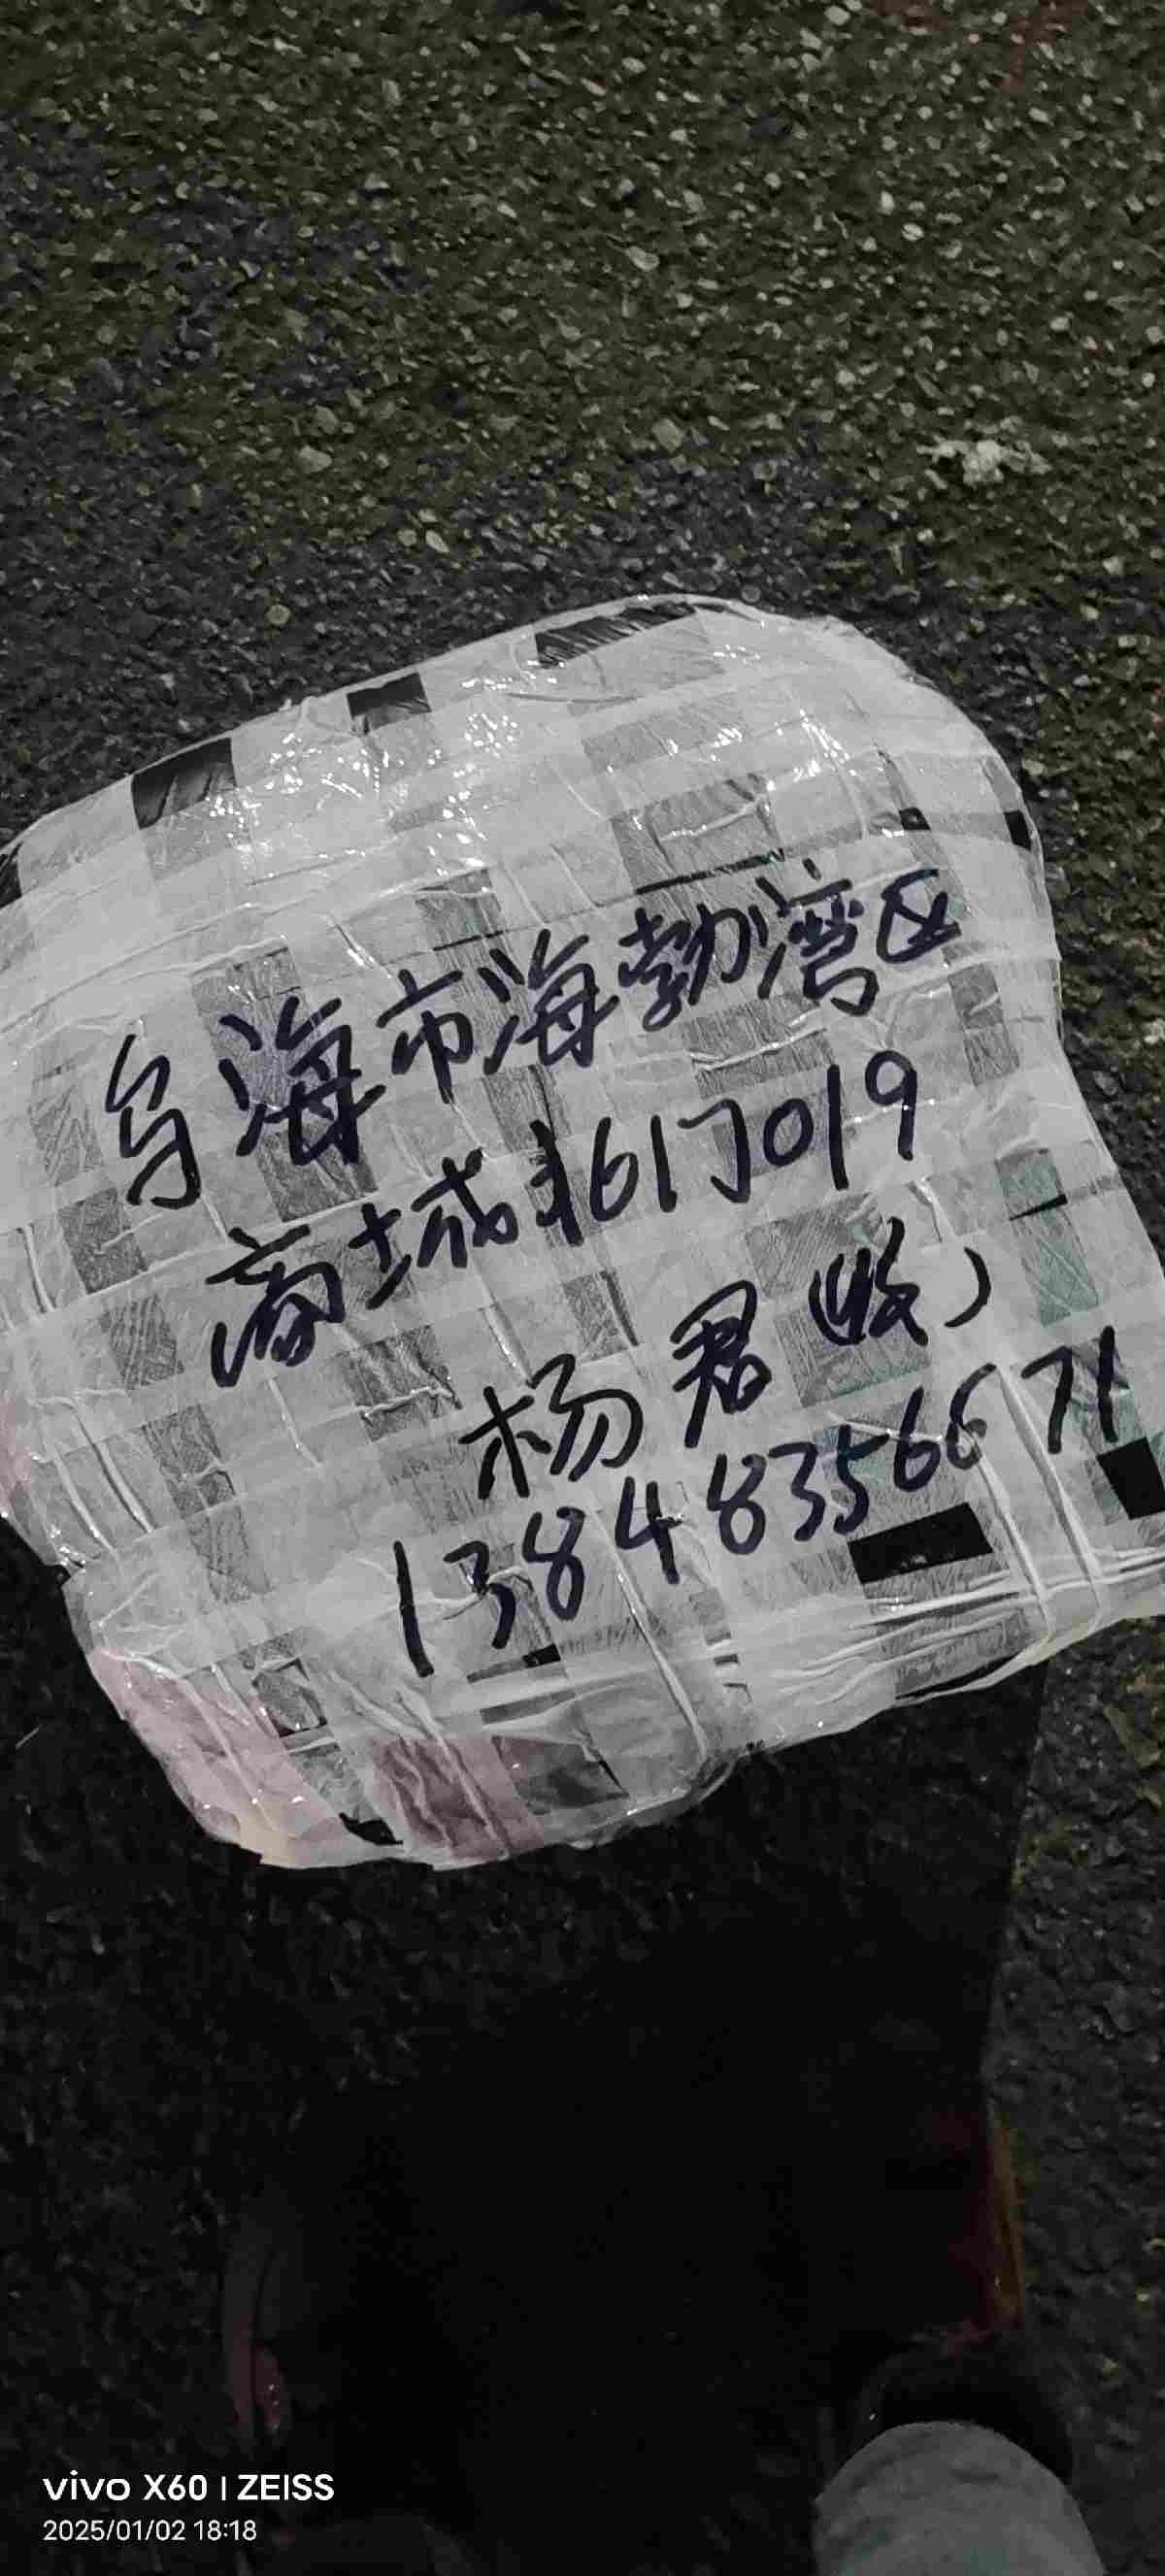 乌海市海勃湾区
商城北门019
杨君(收)
13848356671
vivo X60 | ZEISS
2025/01/02 18:18